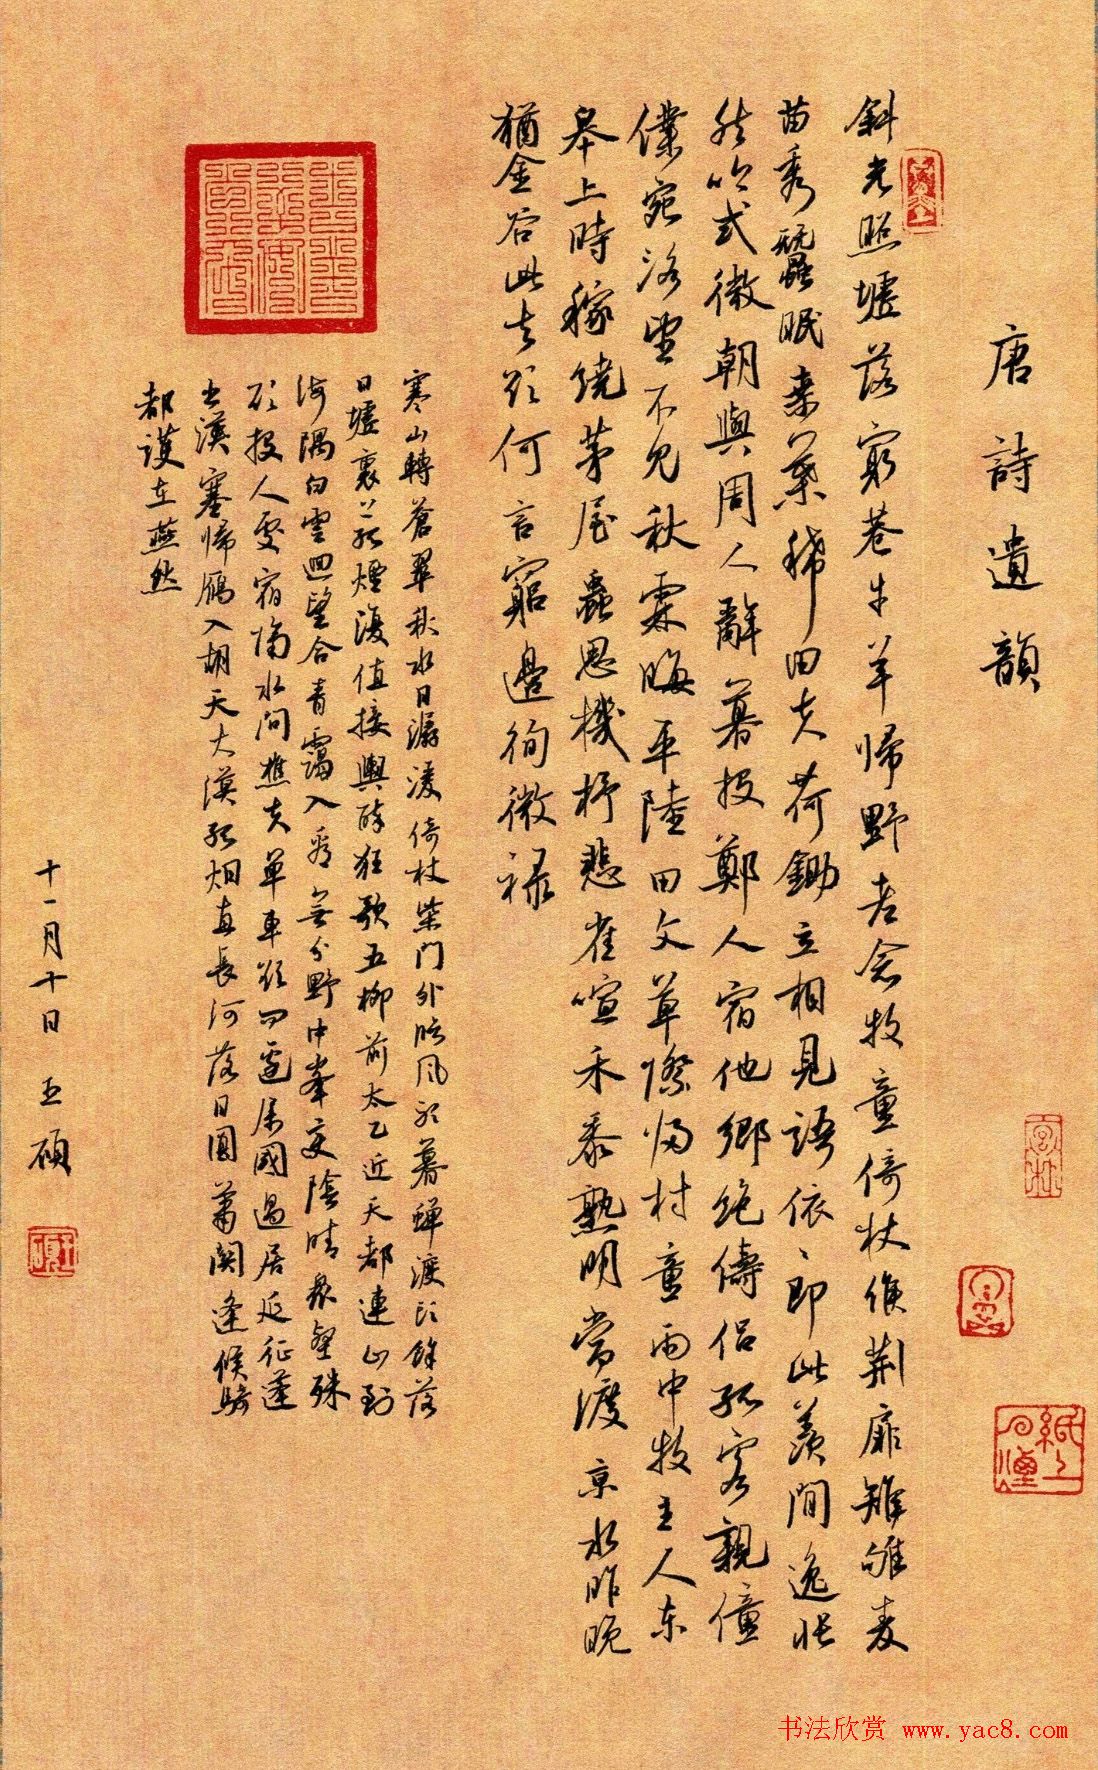 唐詩遺韻
斜光照墟落窮巷牛羊歸野老念牧童倚杖候荆扉雉雊麦
苗秀蠶眠桑葉稀田夫荷鋤立相見語依、即此羨閒逸悵
然吟式微朝與周人辭暮投鄭人宿他鄉絶儔侣孤客親僮
僕宛洛望不見秋霖晦平陸田父草際歸村童雨中牧主人東
皋上時稼繞茅屋蟲思機杼悲雀喧禾黍熟明當渡京水昨晚
猶金谷此去欲何言窮邊徇微禄
寒山轉蒼翠秋水日潺湲倚杖柴門外臨风聽暮蟬渡頭餘落
日墟裏上孤煙復值接輿醉狂歌五柳前太乙近天都連山到
海隅白雲迴望合青靄入看無分野中峯变陰晴衆壑殊
欲投人處宿隔水問樵夫單車欲问邊属國過居延征蓬
出漢塞歸鴈入胡天大漠孤烟直長河落日圓蕭関逢候騎
都護在燕然
十一月十日 王碩
书法欣赏 www.yac8.com